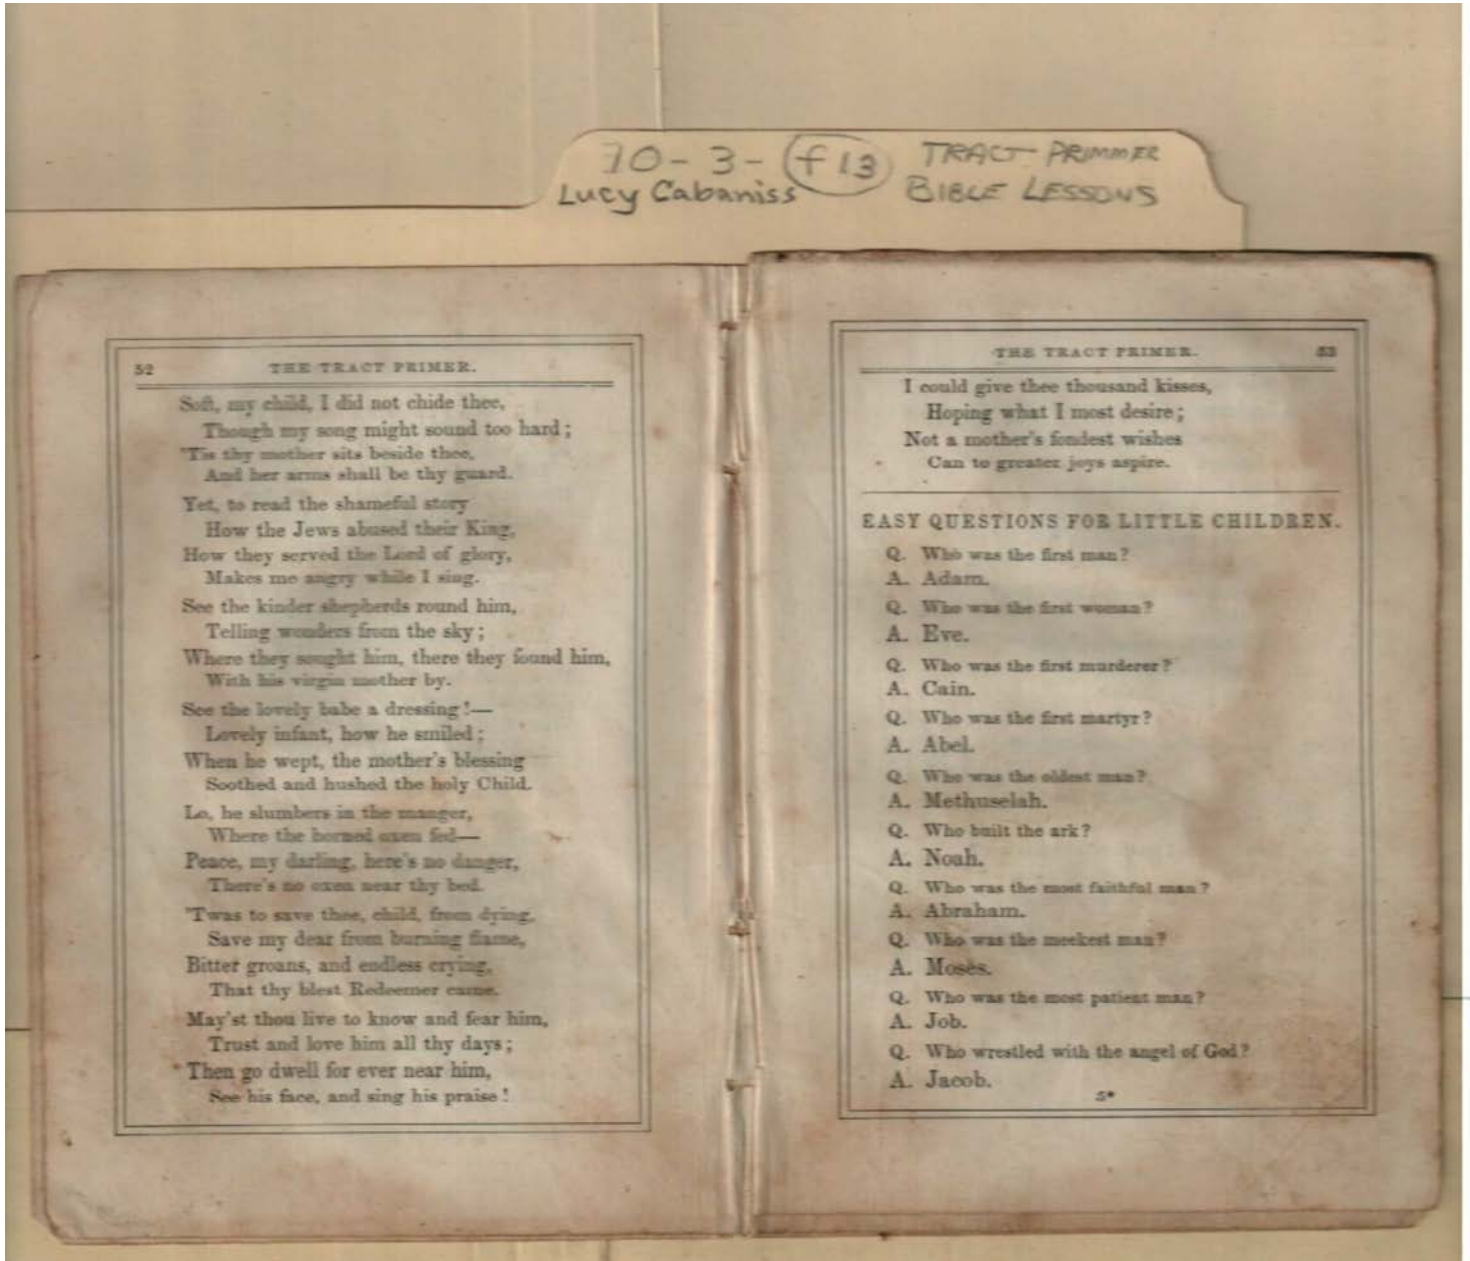 70-3-f13 TRACT PRIMMER
Lucy Cabaniss BIBLE LESSONS
52 THE TRACT PRIMER.
Soft, my child, I did not chide thee,
Though my song might sound too hard;
'Tis thy mother sits beside thee,
And her arms shall be thy guard.
Yet, to read the shameful story
How the Jews abused their King,
How they served the Lord of glory,
Makes me angry while I sing.
See the kinder shepherds round him,
Telling wonders from the sky;
Where they sought him, there they found him,
With his virgin mother by.
See the lovely babe a dressing!—
Lovely infant, how he smiled;
When he wept, the mother's blessing
Soothed and hushed the holy Child.
Lo, he slumbers in the manger,
Where the horned oxen fed—
Peace, my darling, here's no danger,
There's no oxen near thy bed.
'Twas to save thee, child, from dying,
Save my dear from burning flame,
Bitter groans, and endless crying,
That thy blest Redeemer came.
May'st thou live to know and fear him,
Trust and love him all thy days;
Then go dwell for ever near him,
See his face, and sing his praise!
THE TRACT PRIMER. 53
I could give thee thousand kisses,
Hoping what I most desire;
Not a mother's fondest wishes
Can to greater joys aspire.
EASY QUESTIONS FOR LITTLE CHILDREN.
Q. Who was the first man?
A. Adam.
Q. Who was the first woman?
A. Eve.
Q. Who was the first murderer?
A. Cain.
Q. Who was the first martyr?
A. Abel.
Q. Who was the oldest man?
A. Methuselah.
Q. Who built the ark?
A. Noah.
Q. Who was the most faithful man?
A. Abraham.
Q. Who was the meekest man?
A. Moses.
Q. Who was the most patient man?
A. Job.
Q. Who wrestled with the angel of God?
A. Jacob.
5*